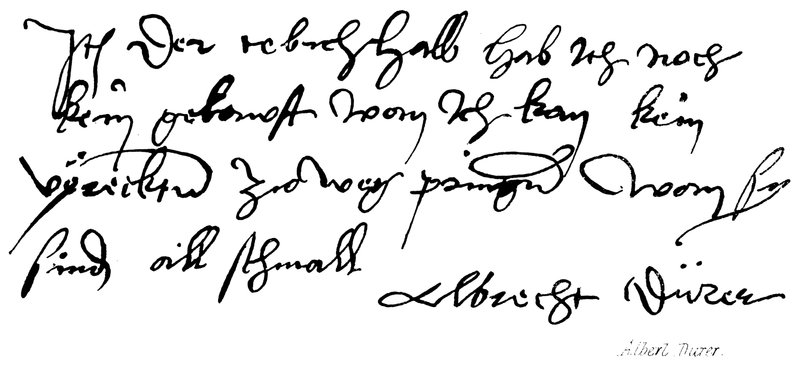 Itm Der tebich halb hab ich noch
kein gekawft wan ich kan kein
vöreckten zw weg pringen wan sy
sind all schmall
Albrecht Dürer
Albert Durer.